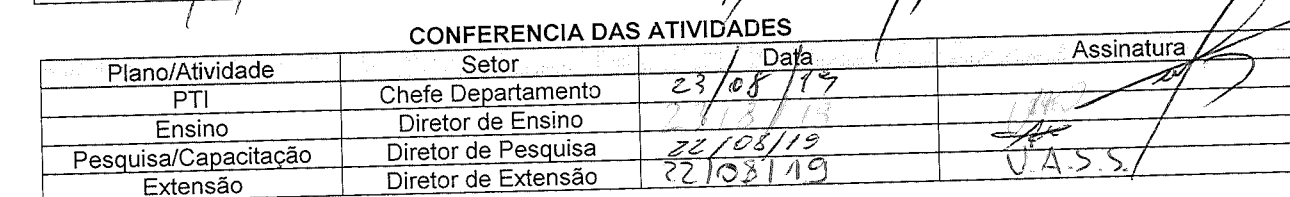 CONFERENCIA DAS ATIVIDADES
Plano/Atividade Setor Data Assinatura
PTI Chefe Departamento 23/08/19
Ensino Diretor de Ensino
Pesquisa/Capacitação Diretor de Pesquisa 22/08/19
Extensão Diretor de Extensão 22/08/19 V.A.S.S.